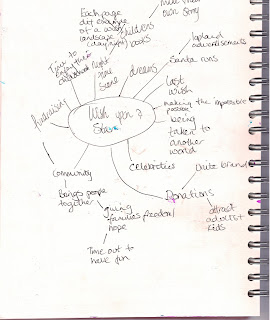 own story
Each page
diff example
of a
landscape
(day/night)
childrens
books
Time to
enjoy their
childhood
night
time
scene
dreams
Lapland
advertisements
Santa runs
last
wish
making the impossible
possible
being
taken to
another
world
Fundraising
Wish upon a
Star
Celebrities
Donations
attract
adults +
kids
Community
Brings people
together
giving
families freedom/
hope
Time out to
have fun